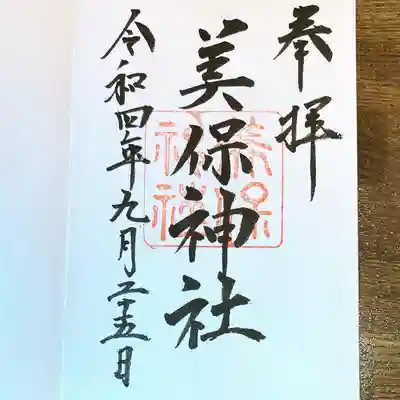 奉拝
美保神社
美保
神社
令和四年九月二十五日